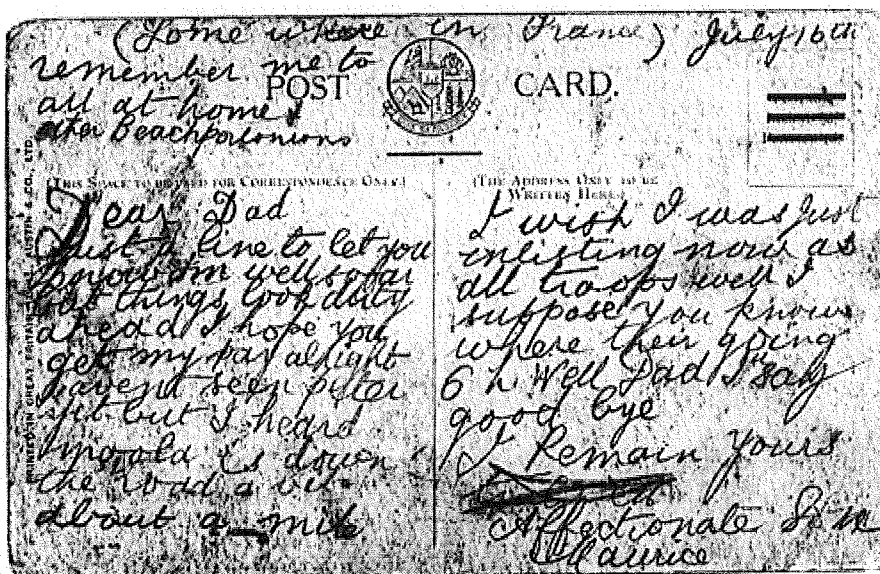 (Some where in France) July 16th
remember me to
all at home &
other Beachportonians
POST CARD.
(THIS SPACE TO BE USED FOR CORRESPONDENCE ONLY.)
(THE ADDRESS ONLY TO BE
WRITTEN HERE.)
Dear Dad
Just a line to let you
know Im well so far
but things look dirty
ahead I hope you
get my pay alright
havent seen peter
yet but I heard
moola is down
the road a bit
about a mile
I wish I was just
enlisting now as
all troops well I
suppose you know
where their going
6 h Well Dad I'll say
good bye
I Remain yours
Affectionate Son
Maurice
PRINTED IN GREAT BRITAIN